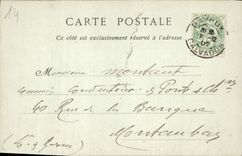 14
CARTE POSTALE
Ce côté est exclusivement réservé à l'adresse
BAYEUX
CALVADOS
Monsieur Montaut
commis Conducteur des Ponts et Ch
40 Rue de la Banque
Montauban
(T. & Garonne)